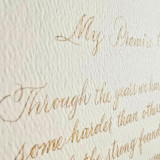 My Promise t
Through the years we hav
some harder than other
the strong found